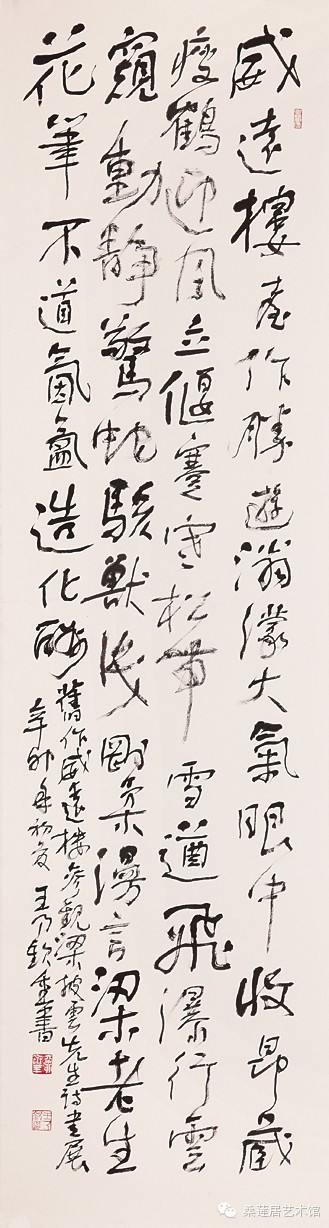 威遠樓臺作勝遊滃濛大氣眼中收昂藏
瘦鶴迎風立偃蹇寒松帶雪遒飛瀑行雲
窺動靜驚蛇駭獸剛柔漫言梁老生
花筆不道氤氳造化酬
舊作威遠樓參觀梁披雲先生詩書展
辛卯年初夏 王乃欽重書
桑莲居艺术馆